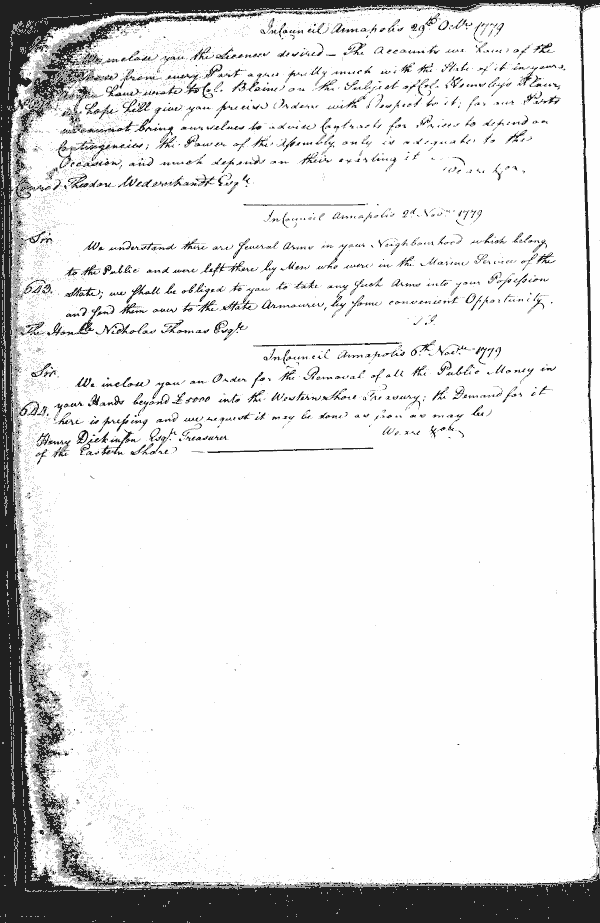 In Council Annapolis 29th Octr 1779
We inclose you the Licences desired — The Accounts we have of the
from every Part agree pretty much with the State of it in yours,
you have wrote to Col. Blaine on the Subject of Col. Hemsley's Flour,
we hope will give you precise Orders with Respect to it; for our Parts
we cannot bring ourselves to advise Contracts for Prices to depend on
Contingencies; the Power of the Assembly only is adequate to the
Occasion, and much depends on their exerting it —
We are &c.
Conrod Theodore Wederstrandt Esqr.
In Council Annapolis 2d Novr 1779
Sir
We understand there are several Arms in your Neighbourhood which belong
to the Public and were left there by Men who were in the Marine Service of the
643. State; we shall be obliged to you to take any such Arms into your Possession
and send them over to the State Armourer, by some convenient Opportunity.
The Honble Nicholas Thomas Esqr
In Council Annapolis 6th Novr 1779
Sir
We inclose you an Order for the Removal of all the Public Money in
644. your Hands beyond £5000 into the Western Shore Treasury; the Demand for it
here is pressing and we request it may be done as soon as may be
Henry Dickinson Esqr. Treasurer We are &c.
of the Eastern Shore